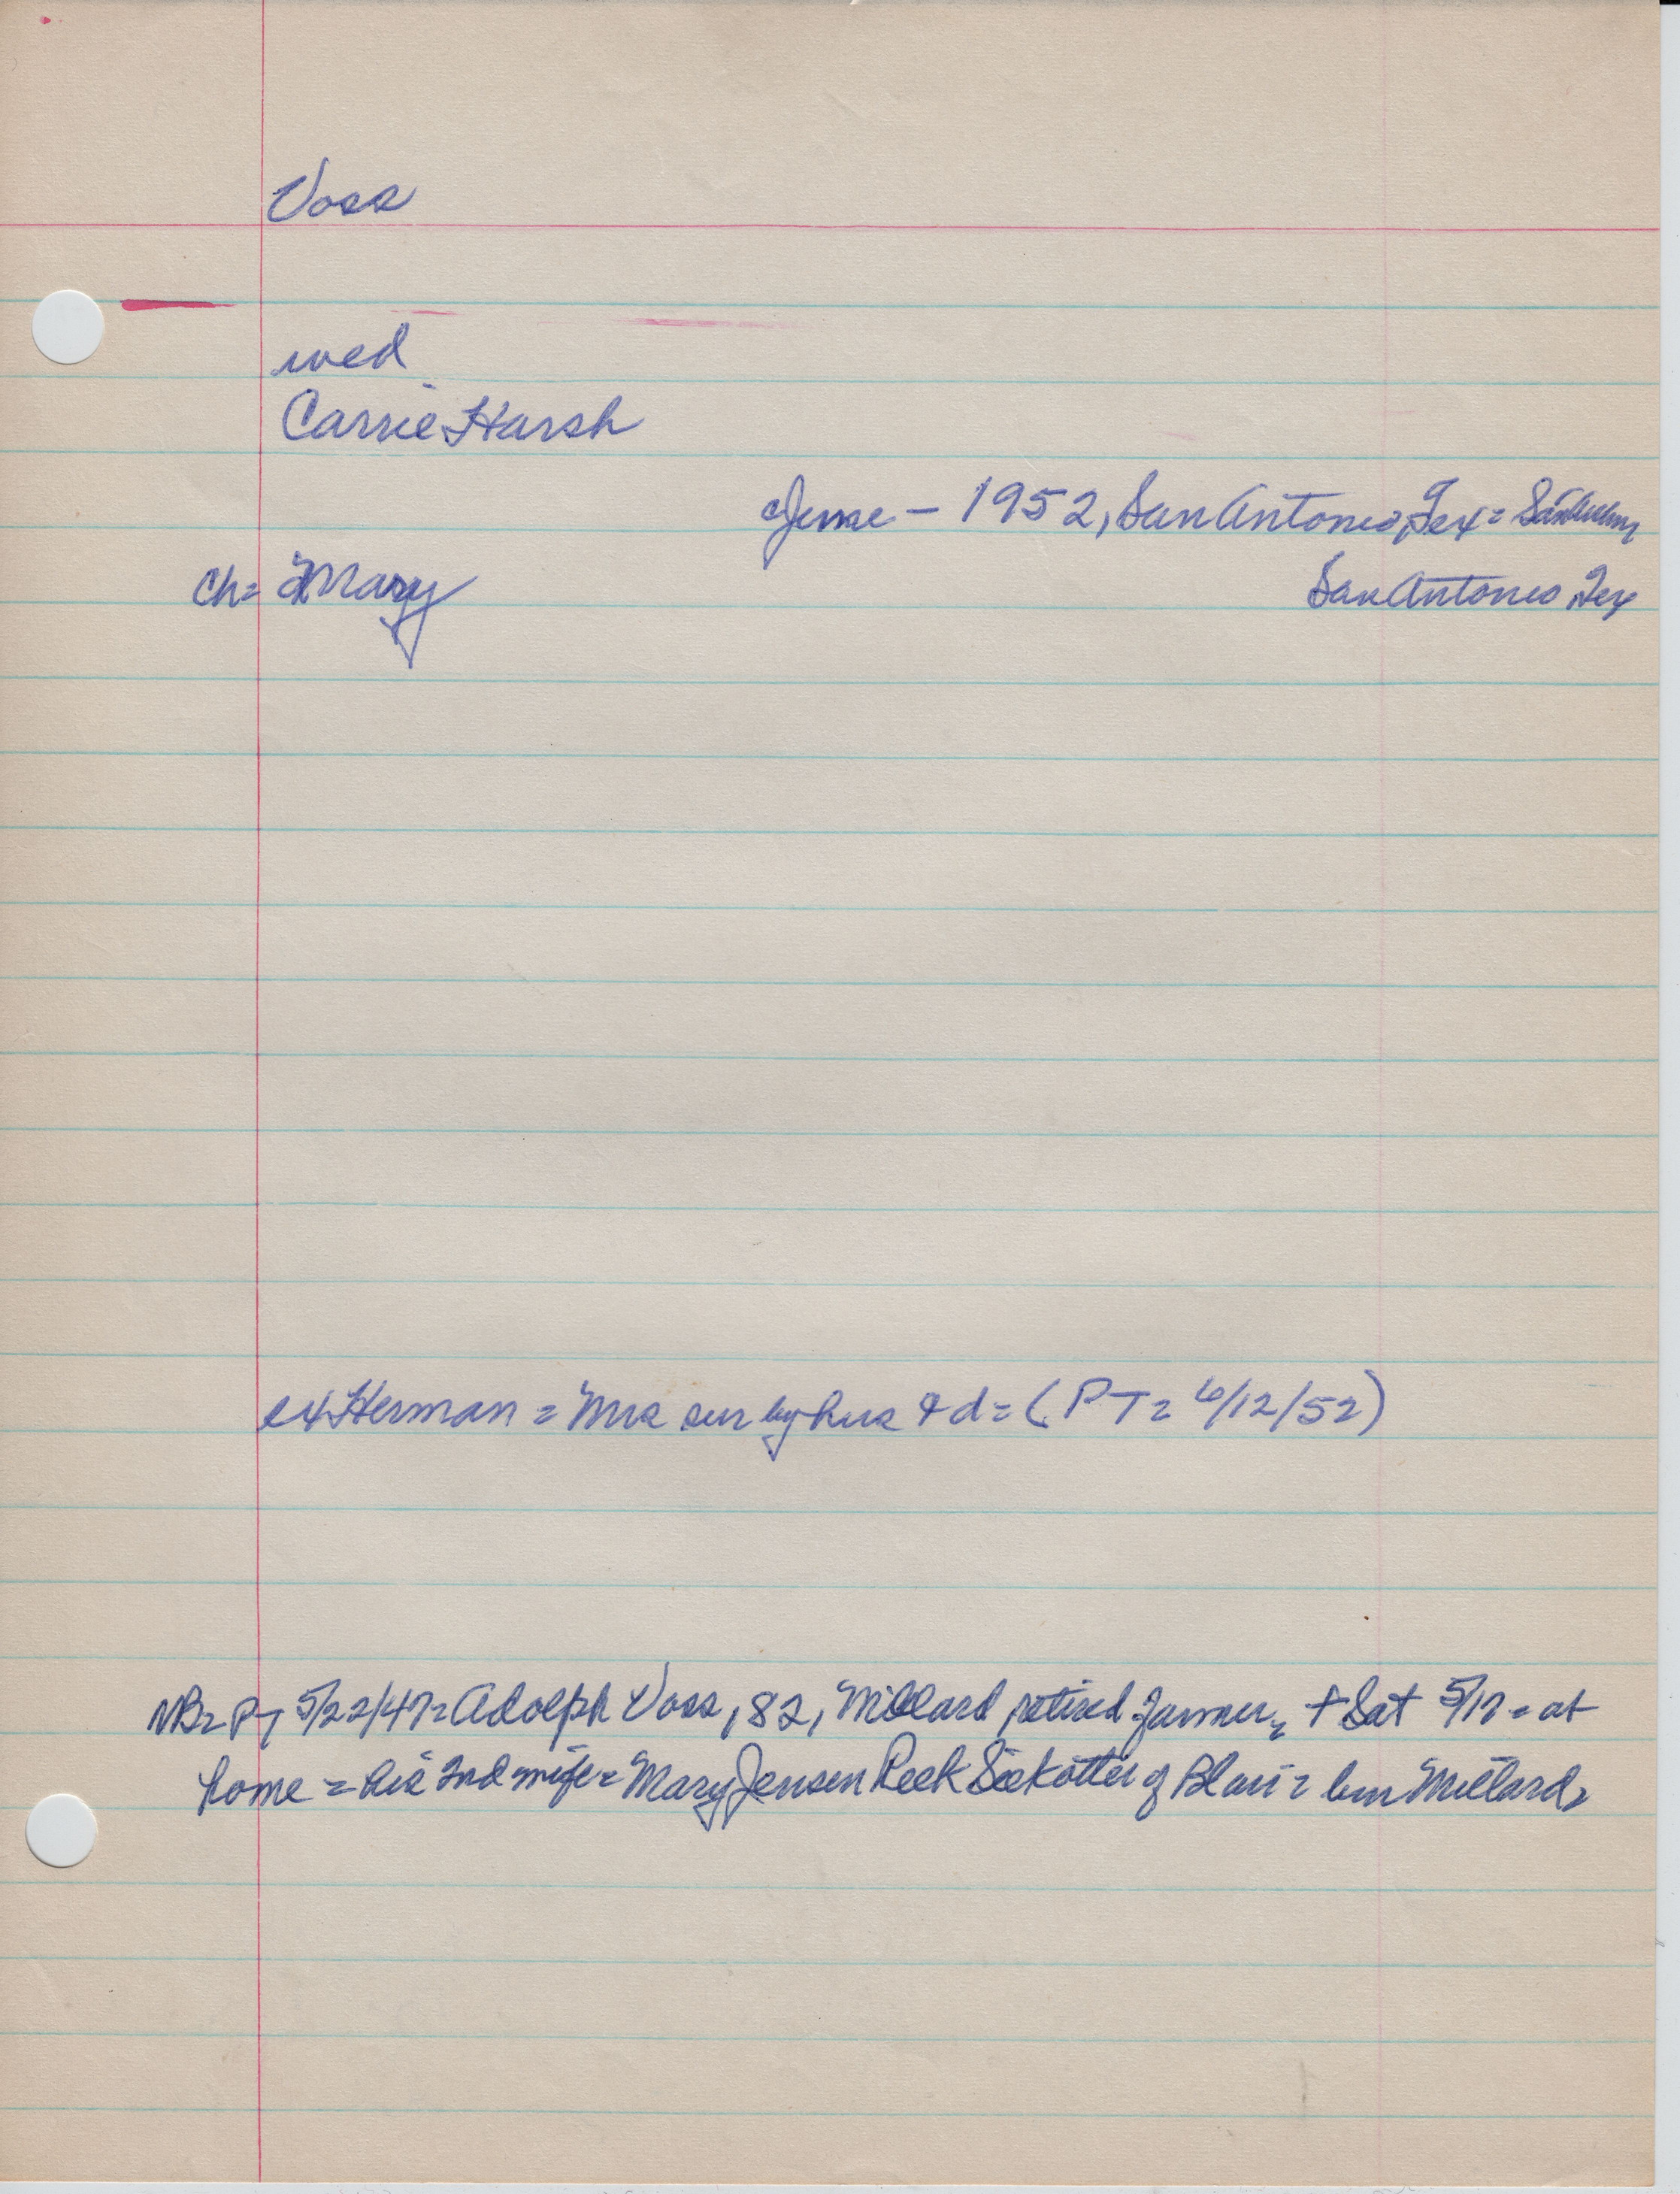 Voss
wed
Carrie Harsh
June – 1952, San Antonio, Tex =
Ch = Mary
San Antonio, Tex
ex Herman = Mrs sur by hus & d = (PT = 6/12/52)
NB = PT 5/22/47 = Adolph Voss, 82, Millard retired farmer, + Sat 5/17 = at
home = his 2nd wife = Mary Jensen Reek Siekötter of Blair = bur Millard =